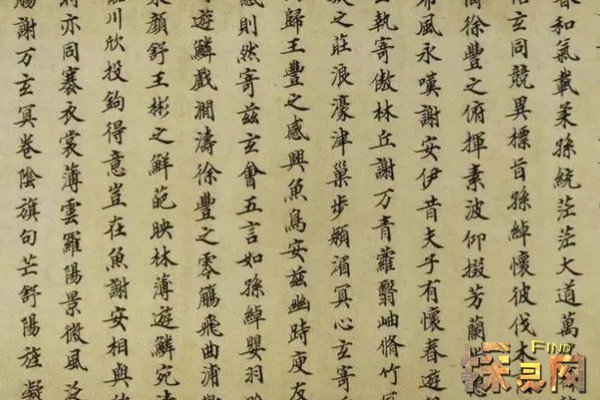 春和氣載柔孫統茫茫大道萬
玄同競異標旨孫綽懷彼伐木
徐豐之俯揮素波仰掇芳蘭
希風永嘆謝安伊昔夫子有懷春遊
執寄傲林丘謝万青蘿翳岫脩竹
之莊浪濠津巢步潁湄冥心玄寄
歸王豐之感興魚鳥安茲幽時庾友
感則然寄茲玄會五言如孫綽嬰羽吟
遊鱗戲澗濤徐豐之零觴飛曲浦
顏舒王彬之鮮葩映林薄遊鱗宛
川欣投鉤得意豈在魚謝安相與
亦同褰衣裳薄雲羅陽景微風
觴謝万玄冥卷陰旗句芒舒陽旌凝
FIND
探灵网